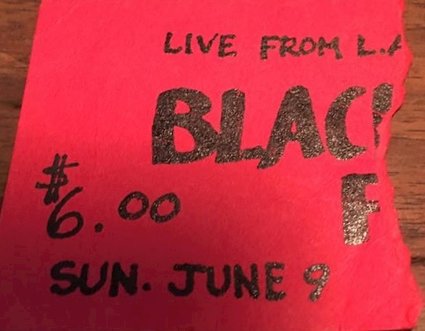 LIVE FROM L.A
BLAC
F
$6.00
SUN. JUNE 9